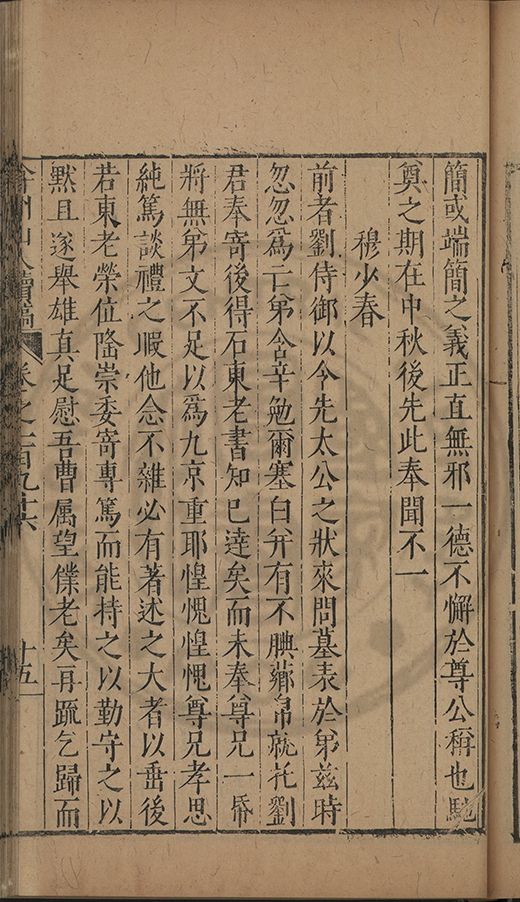 簡或端簡之義正直無邪一德不懈於尊公稱也馳
奠之期在中秋後先此奉聞不一
穆少春
前者劉侍御以令先太公之狀來問墓表於弟茲時
忽忽爲亡弟含辛勉爾塞白并有不腆薌帛就托劉
君奉寄後得石東老書知已達矣而未奉尊兄一昏
將無弟文不足以爲九京重耶惶愧惶愧尊兄孝思
純篤談禮之暇他念不雜必有著述之大者以垂後
若東老榮位隆崇委寄專篤而能持之以勤守之以
默且遂舉雄真足慰吾曹属望僕老矣再䟽乞歸而
弇州山人續稿 卷之一百九十六 十五